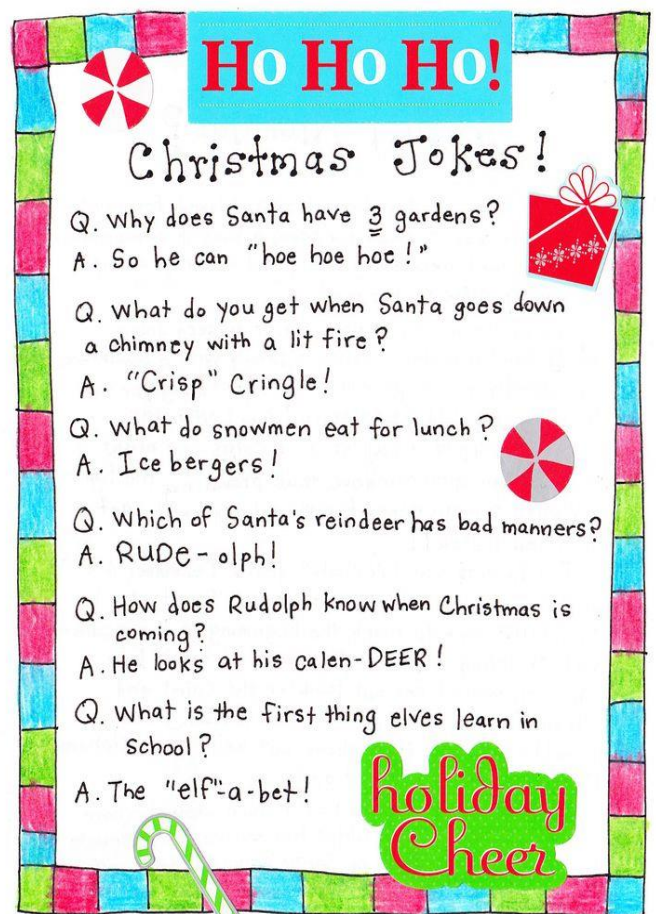 Ho Ho Ho!
Christmas Jokes!
Q. Why does Santa have 3 gardens?
A. So he can "hoe hoe hoe!"
Q. What do you get when Santa goes down
a chimney with a lit fire?
A. "Crisp" Cringle!
Q. What do snowmen eat for lunch?
A. Ice bergers!
Q. Which of Santa's reindeer has bad manners?
A. RUDE-olph!
Q. How does Rudolph know when Christmas is
coming?
A. He looks at his calen-DEER!
Q. What is the first thing elves learn in
school?
A. The "elf"-a-bet!
holiday
Cheer